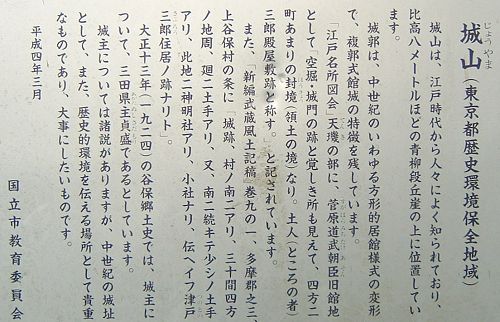 じょうやま
城山(東京都歴史環境保全地域)
城山は、江戸時代から人々によく知られており、
比高八メートルほどの青柳段丘崖の上に位置してい
ます。
城郭は、中世紀のいわゆる方形的居館様式の変形
で、複郭式館城の特徴を残しています。
「江戸名所図会」天璣の部に、菅原道武朝臣旧館地
として「空堀・城門の跡と覚しき所も見えて、四方二
町あまりの封境(領土の境なり。土人(ところの者)
三郎殿屋敷跡と称す。」と記されています。
また、「新編武蔵風土記稿」巻九の一、多摩郡之三、
上谷保村の条に「城跡、村ノ南ニアリ、三十間四方
ノ地周、廻ニ土手アリ、又、南ニ続キテ少シノ土手
アリ、此地ニ神明社アリ、小社ナリ、伝ヘイフ津戸
三郎住居ノ跡ナリト」。
大正十三年(一九二四)の谷保郷土史では、城主に
ついて、三田県主貞盛であるとしています。
城主については諸説がありますが、中世紀の城址
として、また、歴史的環境を伝える場所として貴重
なものであり、大事にしたいものです。
平成四年三月
国立市教育委員会